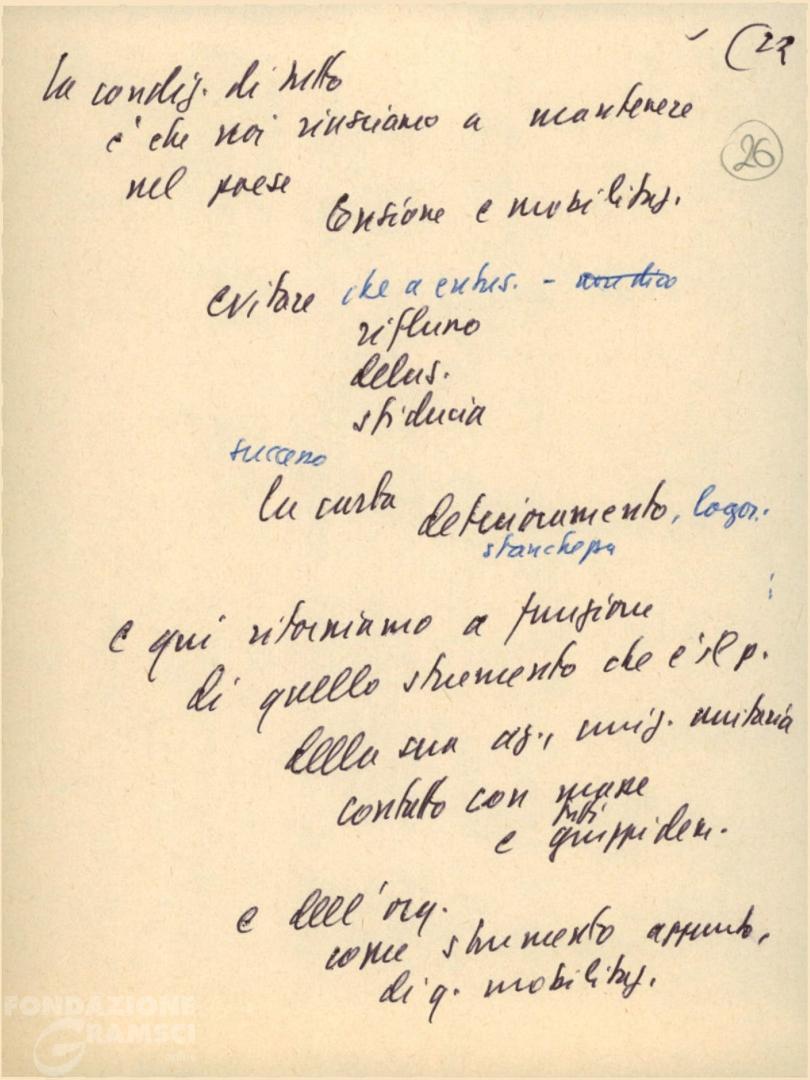 (22
26
la condiz. di tutto
è che noi riusciamo a mantenere
nel paese
tensione e mobilitaz.
evitare che a entus. - non dico
riflusso
delus.
sfiducia
successo
la curva deterioramento, logor.
stanchezza
e qui ritorniamo a funzione
di quello strumento che è il p.
della sua az., iniz. unitaria
contatto con masse
tutti
e gruppi dem.
e dell'org.
come strumento appunto,
di q. mobilitaz.
FONDAZIONE
GRAMSCI